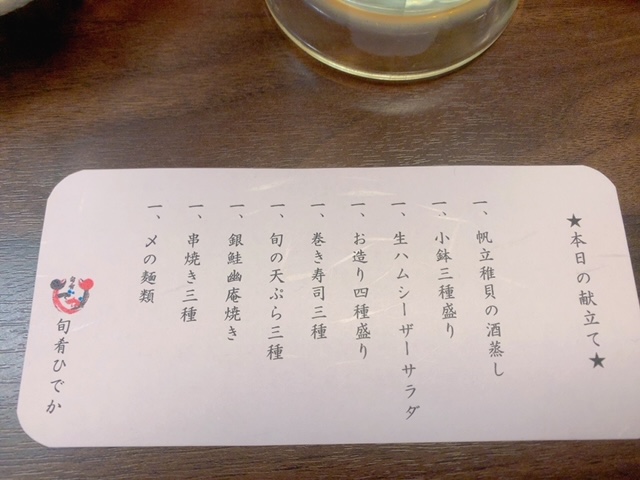 ★本日の献立て★
一、帆立稚貝の酒蒸し
一、小鉢三種盛り
一、生ハムシーザーサラダ
一、お造り四種盛り
一、巻き寿司三種
一、旬の天ぷら三種
一、銀鮭幽庵焼き
一、串焼き三種
一、〆の麺類
旬肴ひでか